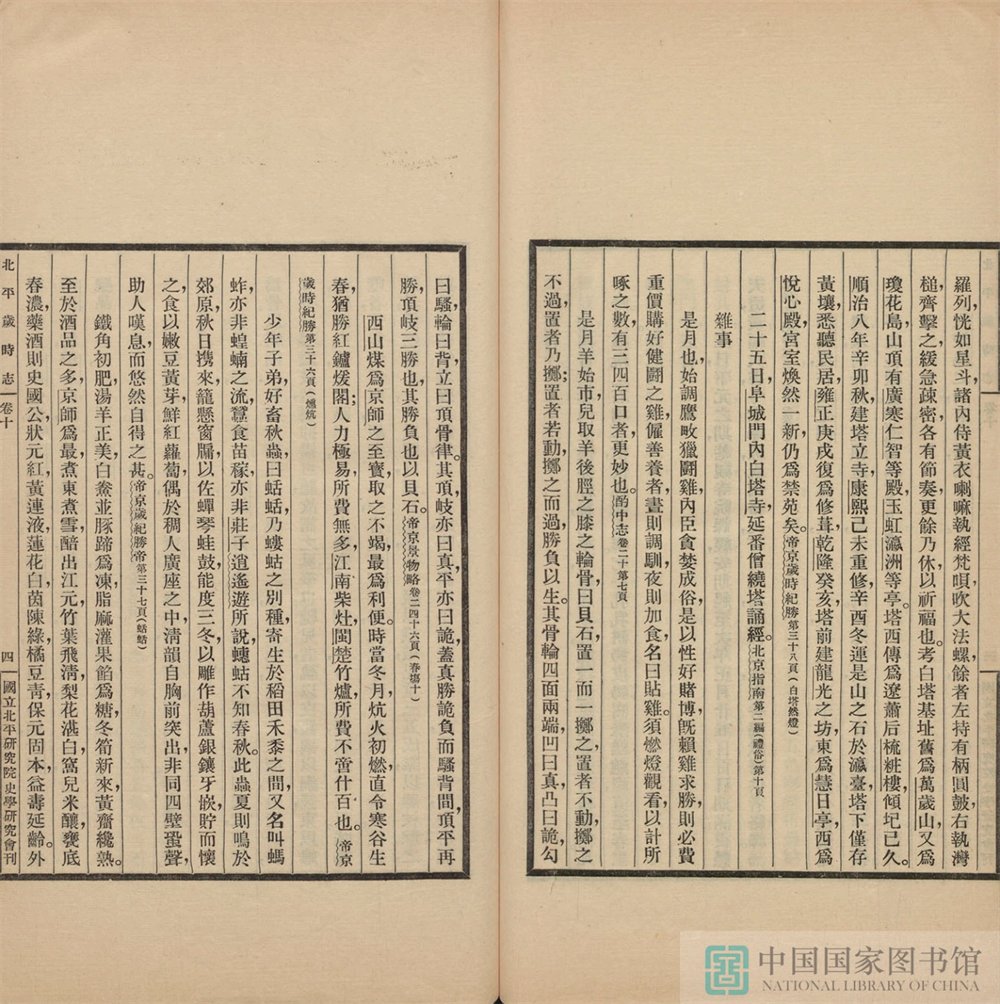 羅列,恍如星斗,諸內侍黃衣喇嘛執經梵唄,吹大法螺,餘者左持有柄圓鼓,右執灣
槌,齊擊之,緩急疎密,各有節奏,更餘乃休,以祈福也。考白塔基址,舊爲萬歲山,又爲
瓊花島,山頂有廣寒仁智等殿,玉虹瀛洲等亭。塔西傳爲遼蕭后梳粧樓,傾圮已久。
順治八年辛卯秋,建塔立寺,康熙己未重修,辛酉冬,運是山之石於瀛臺,塔下僅存
黃壤,悉聽民居。雍正庚戌,復爲修葺,乾隆癸亥,塔前建龍光之坊,東爲慧日亭,西爲
悅心殿,宮室煥然一新,仍爲禁苑矣。帝京歲時紀勝第三十八頁(白塔然燈)
二十五日,阜城門內白塔寺,延番僧繞塔誦經。北京指南第二編(禮俗)第十頁
雜事
是月也,始調鷹畋獵鬬雞。內臣貪婪成俗,是以性好賭博,旣賴雞求勝,則必費
重價購好健鬬之雞,僱善養者,晝則調馴,夜則加食,名曰貼雞。須燃燈觀看,以計所
啄之數,有三四百口者更妙也。酌中志卷二十第七頁
是月羊始市,兒取羊後脛之膝之輪骨,曰貝石,置一而一擲之。置者不動,擲之
不過,置者乃擲;置者若動,擲之而過,勝負以生。其骨輪四面兩端,凹曰真,凸曰詭,勾
曰騷,輪曰背,立曰頂骨律。其頂岐亦曰真,平亦曰詭,蓋真勝詭負而騷背間,頂平再
勝,頂岐三勝也。其勝負也以貝石。帝京景物略卷二四十六頁(春塲十)
西山煤爲京師之至寶,取之不竭,最爲利便。時當冬月,炕火初燃,直令寒谷生
春,猶勝紅鑪煖閣,人力極易,所費無多。江南柴灶,閩楚竹爐,所費不啻什百也。帝京
歲時紀勝第三十六頁(煙炕)
少年子弟好畜秋蟲,曰蛞蛞,乃螻蛄之別種,寄生於稻田禾黍之間,又名叫螞
蚱,亦非蝗蝻之流,蠹食苗稼,亦非莊子逍遙遊所說蟪蛄不知春秋。此蟲夏則鳴於
郊原,秋日携來,籠懸窗牖,以佐蟬琴蛙鼓,能度三冬,以雕作葫蘆,銀鑲牙嵌,貯而懷
之,食以嫩豆黃芽,鮮紅蘿蔔,偶於稠人廣座之中,清韻自胸前突出,非同四壁蛩聲,
助人嘆息,而悠然自得之甚。帝京歲紀勝帝第三十七頁(蛞蛞)
鐵角初肥,湯羊正美,白鯗並豚蹄爲凍,脂麻灌果餡爲糖。冬筍新來,黃齏纔熟。
至於酒品之多,京師爲最。煮東煮雪,醅出江元,竹葉飛清,梨花湛白,窩兒米釀,甕底
春濃,藥酒則史國公,狀元紅,黃連液,蓮花白,茵陳綠,橘豆青,保元固本,益壽延齡。外
北平歲時志
卷十
四
國立北平研究院史學研究會刊
中国国家图书馆
NATIONAL LIBRARY OF CHINA